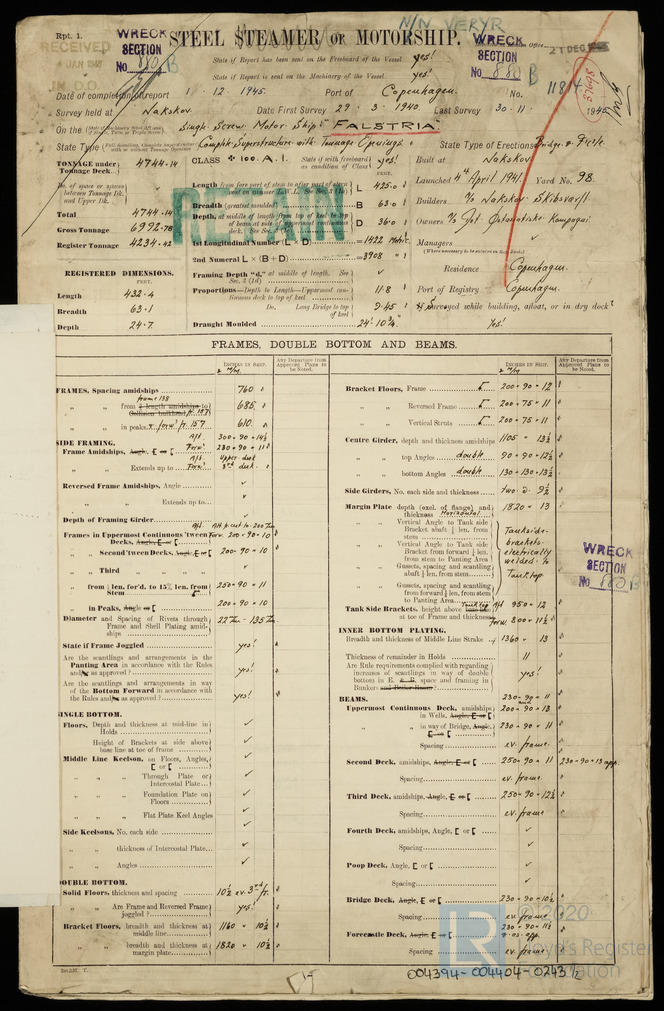 Rpt. 1.
N/N VERYR
RECEIVED
WRECK SECTION No 880 B
STEEL STEAMER OR MOTORSHIP.
WRECK SECTION No 880 B
21 DEC
State if Report has been sent on the Freeboard of the Vessel yes!
State if Report is sent on the Machinery of the Vessel yes!
Date of completion of report 1 . 12 . 1945. Port of Copenhagen.
Survey held at Nakskov Date First Survey 29 . 3 . 1940. Last Survey 30 . 11 . 1945
On the Single Screw Motor Ship FALSTRIA.
State Type Complete Superstructure with Tonnage Openings State Type of Erections Bridge & F'cle.
TONNAGE under Tonnage Deck 4744.14
CLASS + 100. A. 1. State if with freeboard as condition of Class yes!
Built at Nakskov
Launched 4th April 1941. Yard No. 98.
No. of space or spaces between Tonnage Dk. and Upper Dk.
Length from fore part of stem to after part of stern L 425.0
Breadth (greatest moulded) B 63.0
Builders A/S Nakskov Skibsværft.
Total 4744.14
Gross Tonnage 6992.78
Register Tonnage 4234.42
RETAIN
Depth, at middle of length from top of keel to top of beam at side of uppermost continuous deck. D 36.0
Owners A/S Det Østasiatiske Kompagni.
1st Longitudinal Number (L × D) = 1422
Managers
2nd Numeral L × (B + D) = 3908
REGISTERED DIMENSIONS. FEET.
Framing Depth "d," at middle of length.
Residence Copenhagen.
Length 432.4
Proportions—Depth to Length—Uppermost continuous deck to top of keel 11.8
Port of Registry Copenhagen.
Breadth 63.1
Do. Long Bridge to top of keel 9.45
Surveyed while building, afloat, or in dry dock? Yes!
Depth 24.7
Draught Moulded 24'. 10¾"
FRAMES, DOUBLE BOTTOM AND BEAMS.
INCHES IN SHIP. Any Departure from Approved Plans to be Noted.
INCHES IN SHIP. Any Departure from Approved Plans to be Noted.
FRAMES, Spacing amidships 760
" " from frame 138 to 685
" " in peaks 610
SIDE FRAMING.
Frame Amidships, Angle, E or [ Aft 300 × 90 × 14½ Forw' 280 × 90 × 11
" " Extends up to Aft Upper deck Forw' 2nd deck.
Reversed Frame Amidships, Angle
" " Extends up to
Depth of Framing Girder
Frames in Uppermost Continuous 'Tween Decks, Angle, E or [ 200 × 90 × 10
" Second 'Tween Decks, Angle, E or [ 200 × 90 × 10
" Third "
" from ¼ len. for'd. to 15% len. from Stem 250 × 90 × 11
" in Peaks, Angle or [ 200 × 90 × 10
Diameter and Spacing of Rivets through Frame and Shell Plating amidships 22 - 135
State if Frame Joggled yes!
Are the scantlings and arrangements in the Panting Area in accordance with the Rules and/or as approved? yes!
Are the scantlings and arrangements in way of the Bottom Forward in accordance with the Rules and/or as approved? yes!
SINGLE BOTTOM.
Floors, Depth and thickness at mid-line in Holds
Height of Brackets at side above base line at toe of frame
Middle Line Keelson, on Floors, Angles, [ or [
" " Through Plate or Intercostal Plate
" " Foundation Plate on Floors
" " Flat Plate Keel Angles
Side Keelsons, No. each side
" " thickness of Intercostal Plate
" " Angles
DOUBLE BOTTOM.
Solid Floors, thickness and spacing 10½ ev. 3rd fr.
" " Are Frame and Reversed Frame joggled? yes!
Bracket Floors, breadth and thickness at middle line 1160 × 10½
" " breadth and thickness at margin plate 1820 × 10½
Bracket Floors, Frame 200 × 90 × 12
" " Reversed Frame 200 × 75 × 11
" " Vertical Struts 200 × 75 × 11
Centre Girder, depth and thickness amidships 1105 × 13½
" " top Angles double 90 × 90 × 12½
" " bottom Angles double 130 × 130 × 13½
Side Girders, No. each side and thickness two . 9½
Margin Plate depth (excl. of flange) and thickness Horizontal 1820 × 13
" " Vertical Angle to Tank side Bracket abaft ¼ len. from stem
" " Vertical Angle to Tank side Bracket from forward ¼ len. from stem to Panting Area
" " Gussets, spacing and scantling abaft ¼ len. from stem
" " Gussets, spacing and scantling from forward ¼ len. from stem to Panting Area
Tankside-brackets electrically welded to Tanktop
WRECK SECTION No 880 B
Tank Side Brackets, height above Tanktop at toe of Frame and thickness Aft 950 × 12 Forw' 800 × 11½
INNER BOTTOM PLATING.
Breadth and thickness of Middle Line Strake 1360 × 13
Thickness of remainder in Holds 11
Are Rule requirements complied with regarding increases of scantlings in way of double bottom in E. & B. space and framing in Bunker and Boiler Room? yes!
BEAMS.
Uppermost Continuous Deck, amidships in Wells, Angle, E or [ 230 × 90 × 11 200 × 90 × 13
" " in way of Bridge, Angle, E or [ 230 × 90 × 11
Spacing ev. frame
Second Deck, amidships, Angle, E or [ 250 × 90 × 11 230 × 90 × 13 app.
Spacing ev. frame
Third Deck, amidships, Angle, E or [ 250 × 90 × 12½
Spacing ev. frame
Fourth Deck, amidships, Angle, [ or [
Spacing
Poop Deck, Angle, [ or [
Spacing
Bridge Deck, Angle, E or [ 230 × 90 × 10½
Spacing ev. frame
Forecastle Deck, Angle, E or [ 230 × 90 × 11½
Spacing ev. frame
LR © 2020 Lloyd's Register Foundation
004394-004404-0243½